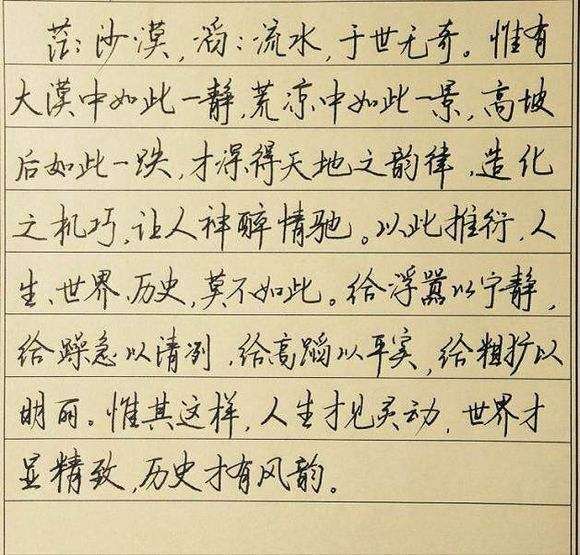 茫茫沙漠,滔滔流水,于世无奇。惟有
大漠中如此一静,荒凉中如此一景,高坡
后如此一跌,才深得天地之韵律,造化
之机巧,让人神醉情驰。以此推衍,人
生、世界、历史,莫不如此。给浮嚣以宁静,
给躁急以清冽,给高蹈以平实,给粗犷以
明丽。惟其这样,人生才见灵动,世界才
显精致,历史才有风韵。